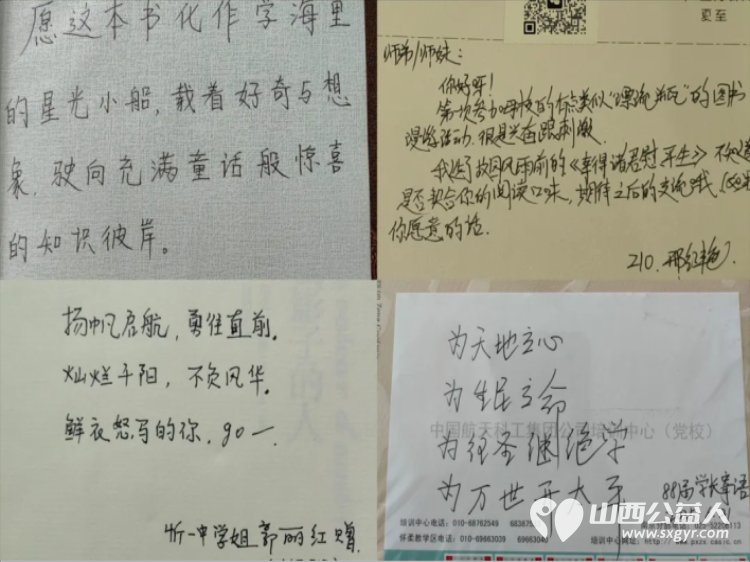 愿这本书化作学海里
的星光小船,载着好奇与想
象,驶向充满童话般惊喜
的知识彼岸。
夏至
师弟/师妹:
你好呀!
第一次参加母校的有点类似“漂流瓶”的图书
漫游活动,很是兴奋跟刺激
我选了故园风雨前的《幸得诸君慰平生》不知道
是否契合你的阅读口味,期待之后的交流哦
你愿意的话.
210.邢红艳
扬帆启航,勇往直前。
灿烂千阳,不负风华。
鲜衣怒马的你,go一
忻一中学姐 郭丽红 赠
影子的人
为天地立心
为生民立命
中国航天科工集团公司培训中心(党校)
为往圣继绝学
为万世开太平
88届学长寄语
培训中心电话:010-68762549
怀柔教学区电话:010-69663039 69663040
培训中心网址:
山西公益人
www.sxgyr.com